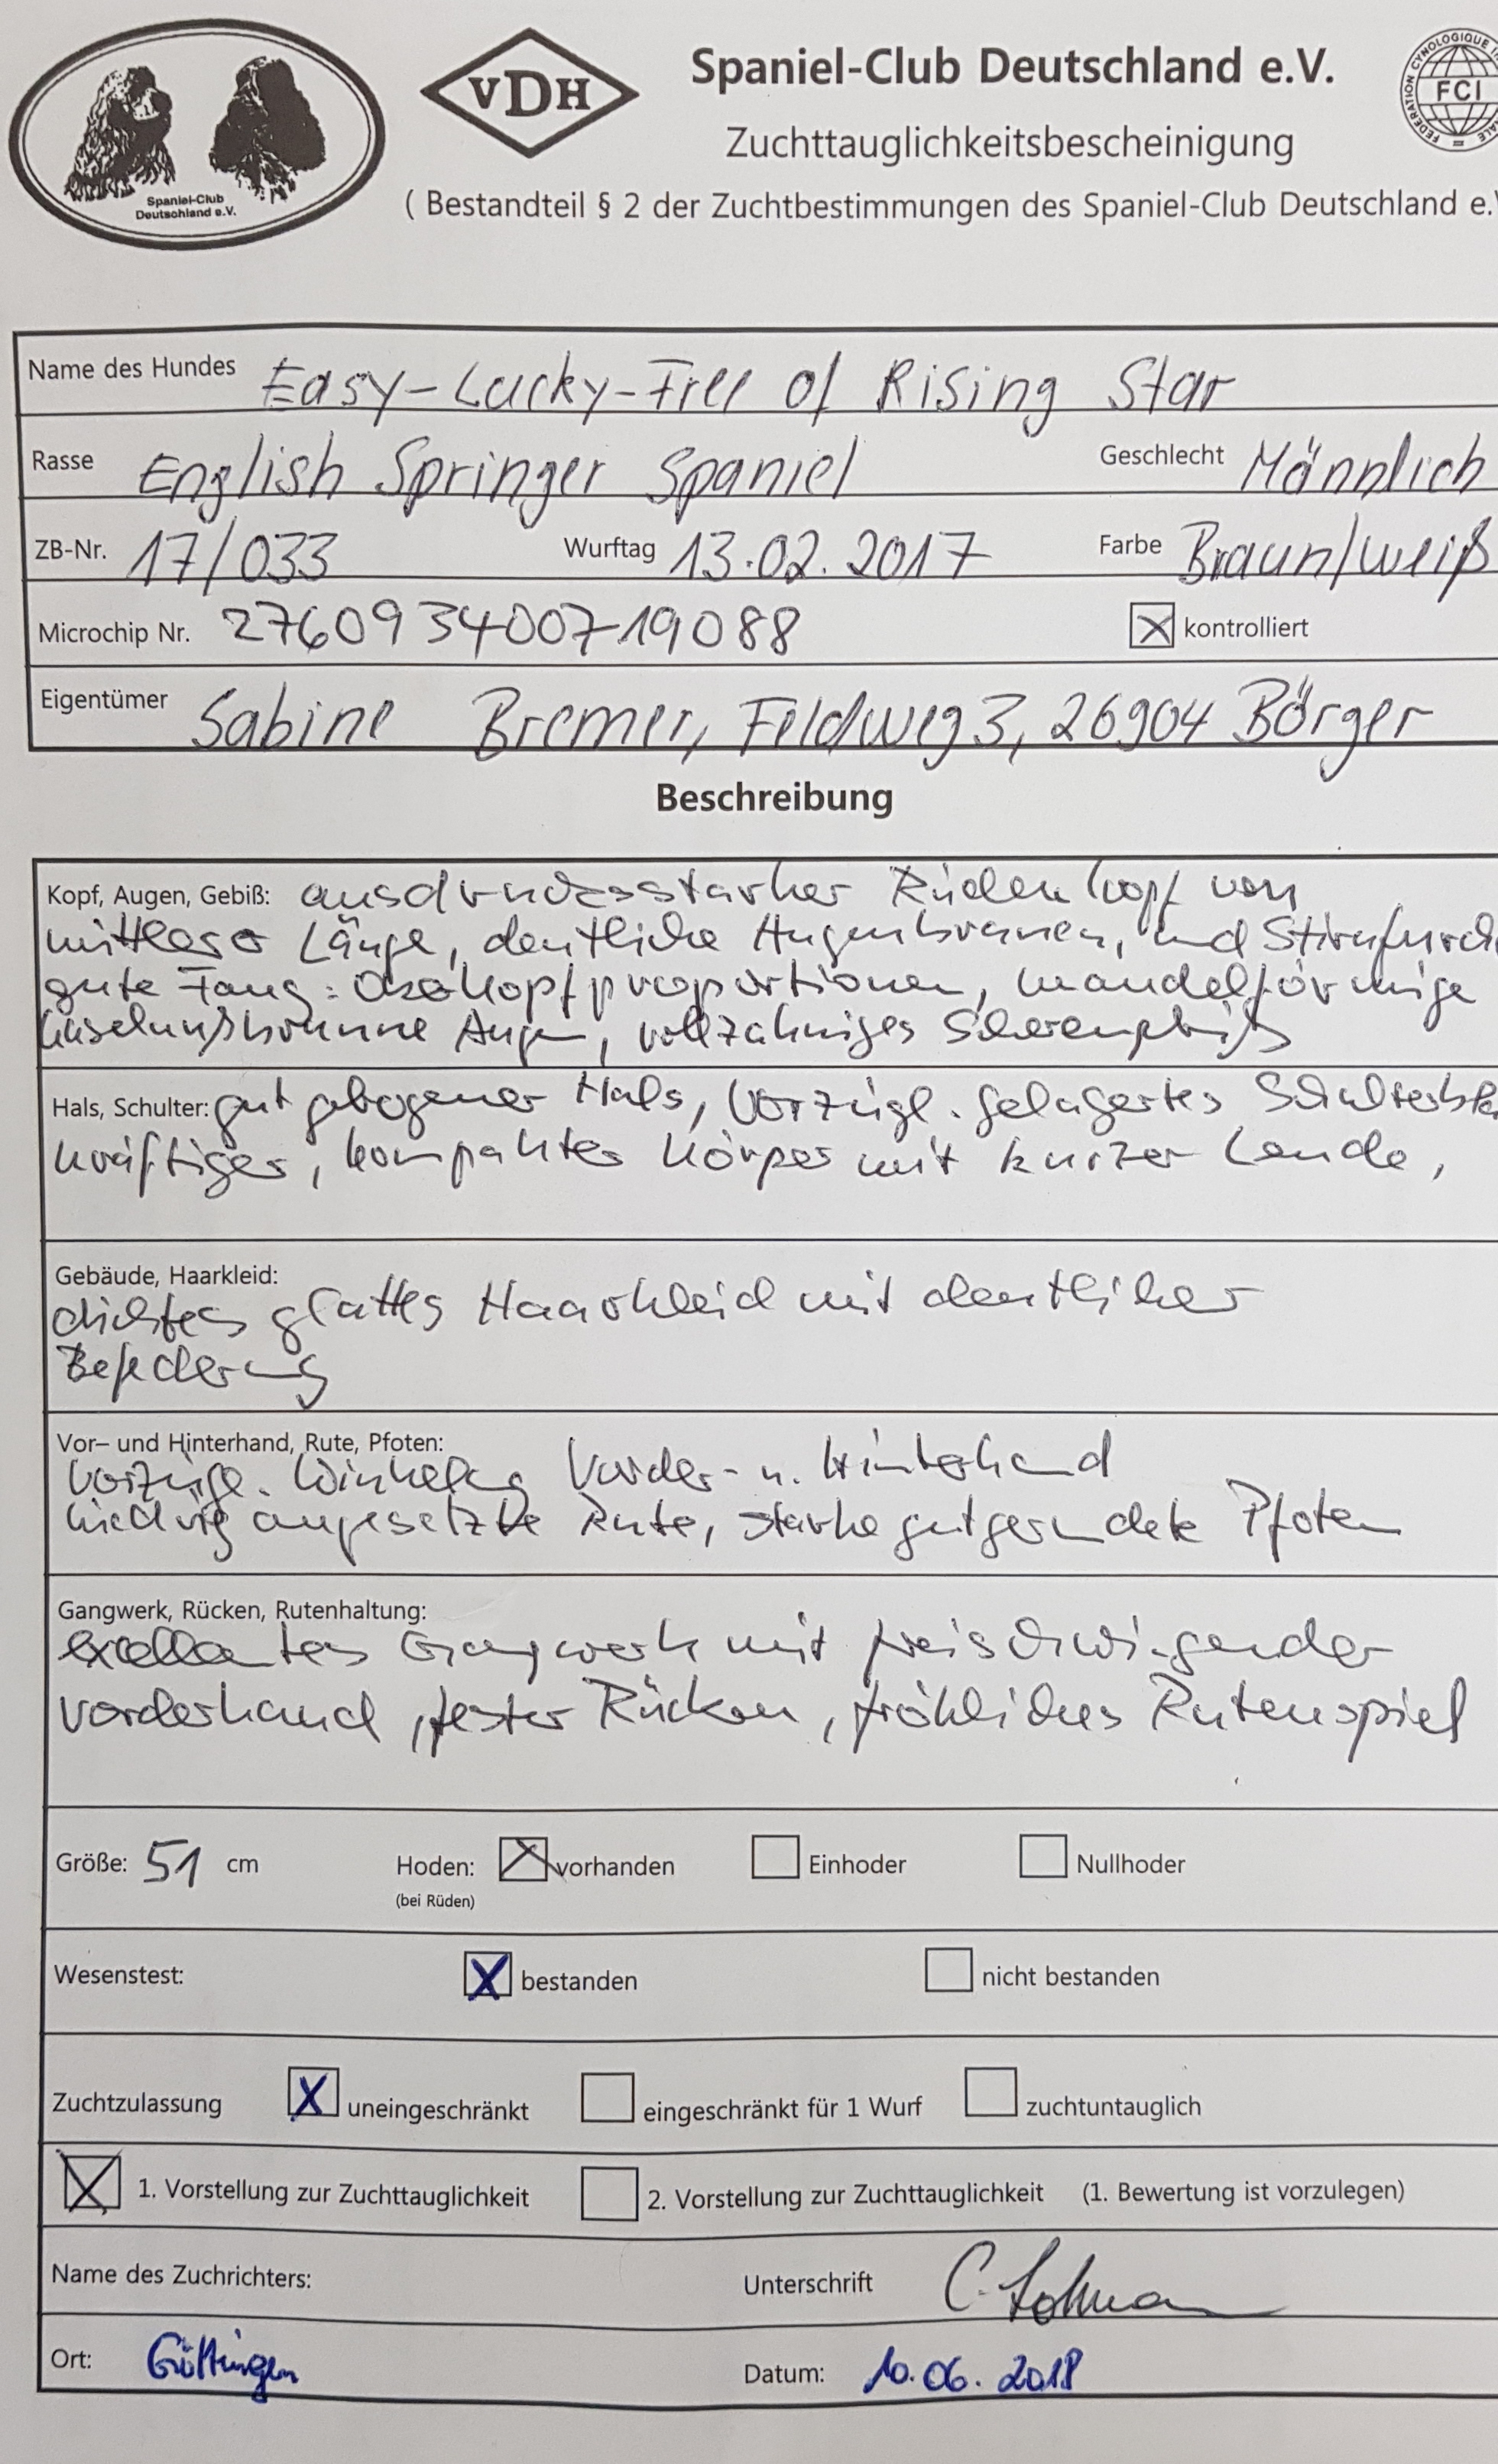 Spaniel-Club
Deutschland e.V.
VDH
Spaniel-Club Deutschland e.V.
Zuchttauglichkeitsbescheinigung
( Bestandteil § 2 der Zuchtbestimmungen des Spaniel-Club Deutschland e.V
FCI
Name des Hundes Easy-Lucky-Free of Rising Star
Rasse English Springer Spaniel Geschlecht Männlich
ZB-Nr. 17/033 Wurftag 13.02.2017 Farbe Braun/weiß
Microchip Nr. 276093400719088 kontrolliert
Eigentümer Sabine Bremer, Feldweg 3, 26904 Börger
Beschreibung
Kopf, Augen, Gebiß: ausdrucksstarker Rüdenkopf von
mittlerer Länge, deutliche Augenbrauen, und Stirnfurch
gute Fang: Oberkopfproportionen, mandelförmige
haselnußbraune Augen, vollzahniges Scherengebiß
Hals, Schulter: gut gebogener Hals, vorzügl. gelagertes
kräftiger, kompakter Körper mit kurzer Lende,
Gebäude, Haarkleid:
dichtes glattes Haarkleid mit deutlicher
Befederung
Vor– und Hinterhand, Rute, Pfoten:
vorzügl. Winkelung Vorder- u. Hinterhand
niedrig angesetzte Rute, starke gut gerundete Pfoten
Gangwerk, Rücken, Rutenhaltung:
excellentes Gangwerk mit freischwingender
Vorderhand, fester Rücken, fröhliches Rutenspiel
Größe: 51 cm Hoden: vorhanden Einhoder Nullhoder
(bei Rüden)
Wesenstest: bestanden nicht bestanden
Zuchtzulassung uneingeschränkt eingeschränkt für 1 Wurf zuchtuntauglich
1. Vorstellung zur Zuchttauglichkeit 2. Vorstellung zur Zuchttauglichkeit (1. Bewertung ist vorzulegen)
Name des Zuchrichters: Unterschrift
Ort: Göttingen Datum: 10.06.2018